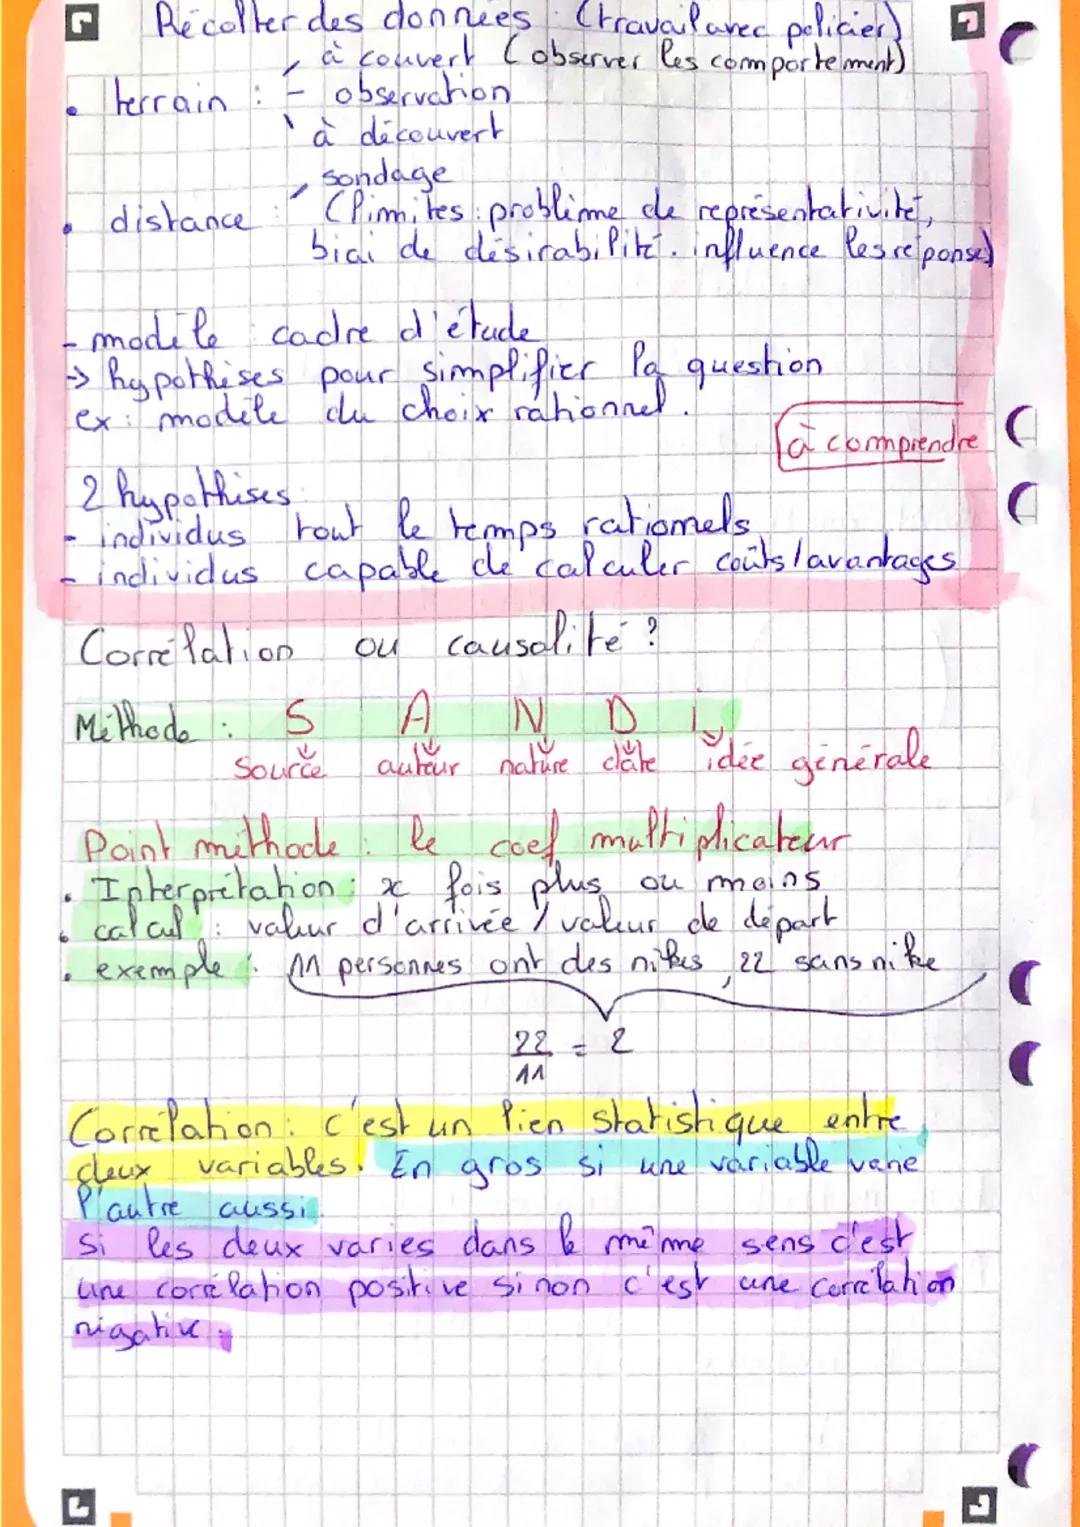 Récolter des données : (travail avec policier)
à couvert (observer les comportement)
• terrain : - observation
à découvert
sondage
• distance : (limites : problème de représentativité,
biai de désirabilité. influence les réponse)
- modèle : cadre d'étude
-> hypothèses pour simplifier la question
ex : modèle du choix rationnel.
à comprendre
2 hypothèses
- individus tout le temps rationnels
- individus capable de calculer coûts/avantages
Corrélation ou causalité ?
Méthode : S A N D i
source auteur nature date idée générale
Point méthode : le coef multiplicateur
• Interprétation : x fois plus ou moins
• calcul : valeur d'arrivée / valeur de départ
• exemple : 11 personnes ont des nikes, 22 sans nike
22/11 = 2
Corrélation : c'est un lien statistique entre
deux variables. En gros si une variable varie
l'autre aussi.
si les deux varies dans le même sens c'est
une corélation positive sinon c'est une corrélation
négative.